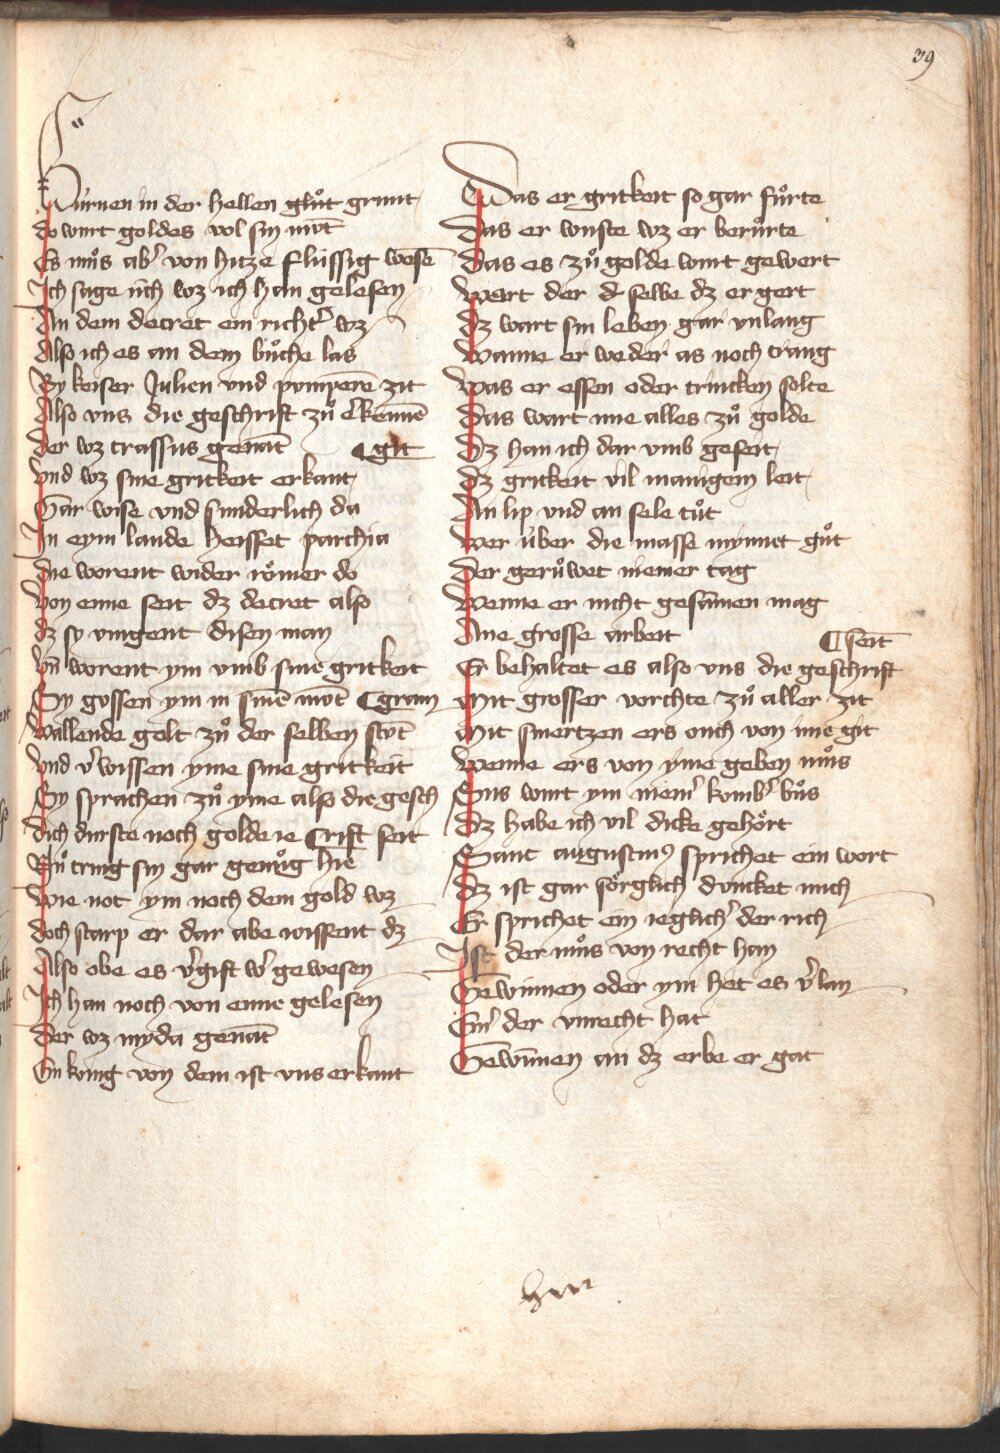 39
Búrnen in der hellen glůt grunt
do wurt goldes vol sin mūt
Es můs ab' von hitze flússig wesē
Ich sage úch wz ich han gelesen
An dem decret ein richt' wz
Also ich es an dem bůche las
By keiser Julien vnd pompeē zit
Also vns die geschrift zů ẻkennē
der wz crassus genāt ¶ git
vnd wz sine gritkeit erkant
Gar wise vnd sunderlich da
In eym lande heisset parchia
die worent wider rŏmer do
von eime seit dz decret also
dz sy vingent disen man
vn̄ worent ym vmb sine gritkeit
Sy gussen ym in sinē mūt ¶ gram
wallende golt zů der selben stūt
vnd v'wissen yme sine gritkeit
Sy sprachen zů yme also die gesch
dich durste noch golde ie ¶ rift seit
Nů tring sin gar genůg hie
wie not ym noch dem gold wz
doch starp er dar abe wissent dz
Also obe es v'gift w' gewesen
Ich han noch von eime gelesen
der wz myda genāt
Ein konig von dem ist vns erkant
Das er gritkeit so gar fůrte
Das er wuste wz er berůrte
Das es zů golde wurt gewert
Wart der d selbe dz er gert
dz wart sin leben gar vnlang
wanne er weder as noch trang
was er essen oder trincken solte
das wart ime alles zů golde
Dz han ich dar vmb geseit
dz gritkeit vil manigem leit
An lip vnd an sele tůt
wer úber die masse mynnet gůt
der gerůwet niemer tag
wenne er nicht gesāmen mag
Ane grosse arbeit ¶ seit
Er behaltet es also vns die geschrift
mit grosser vorchte zů aller zit
mit smertzen ers ouch von ime git
wenne ers von yme geben můs
Sus wurt ym niem' komb' bůs
Dz habe ich vil dicke gehŏrt
Sant augustin9 sprichet ein wort
dz ist gar sŏrglich duncket mich
Er sprichet ein ieglich' der rich
Ist der můs von recht han
Gewinnen oder ym het es v'lan
Ein' der vnrecht hat
Gewūnen an dz erbe er gat